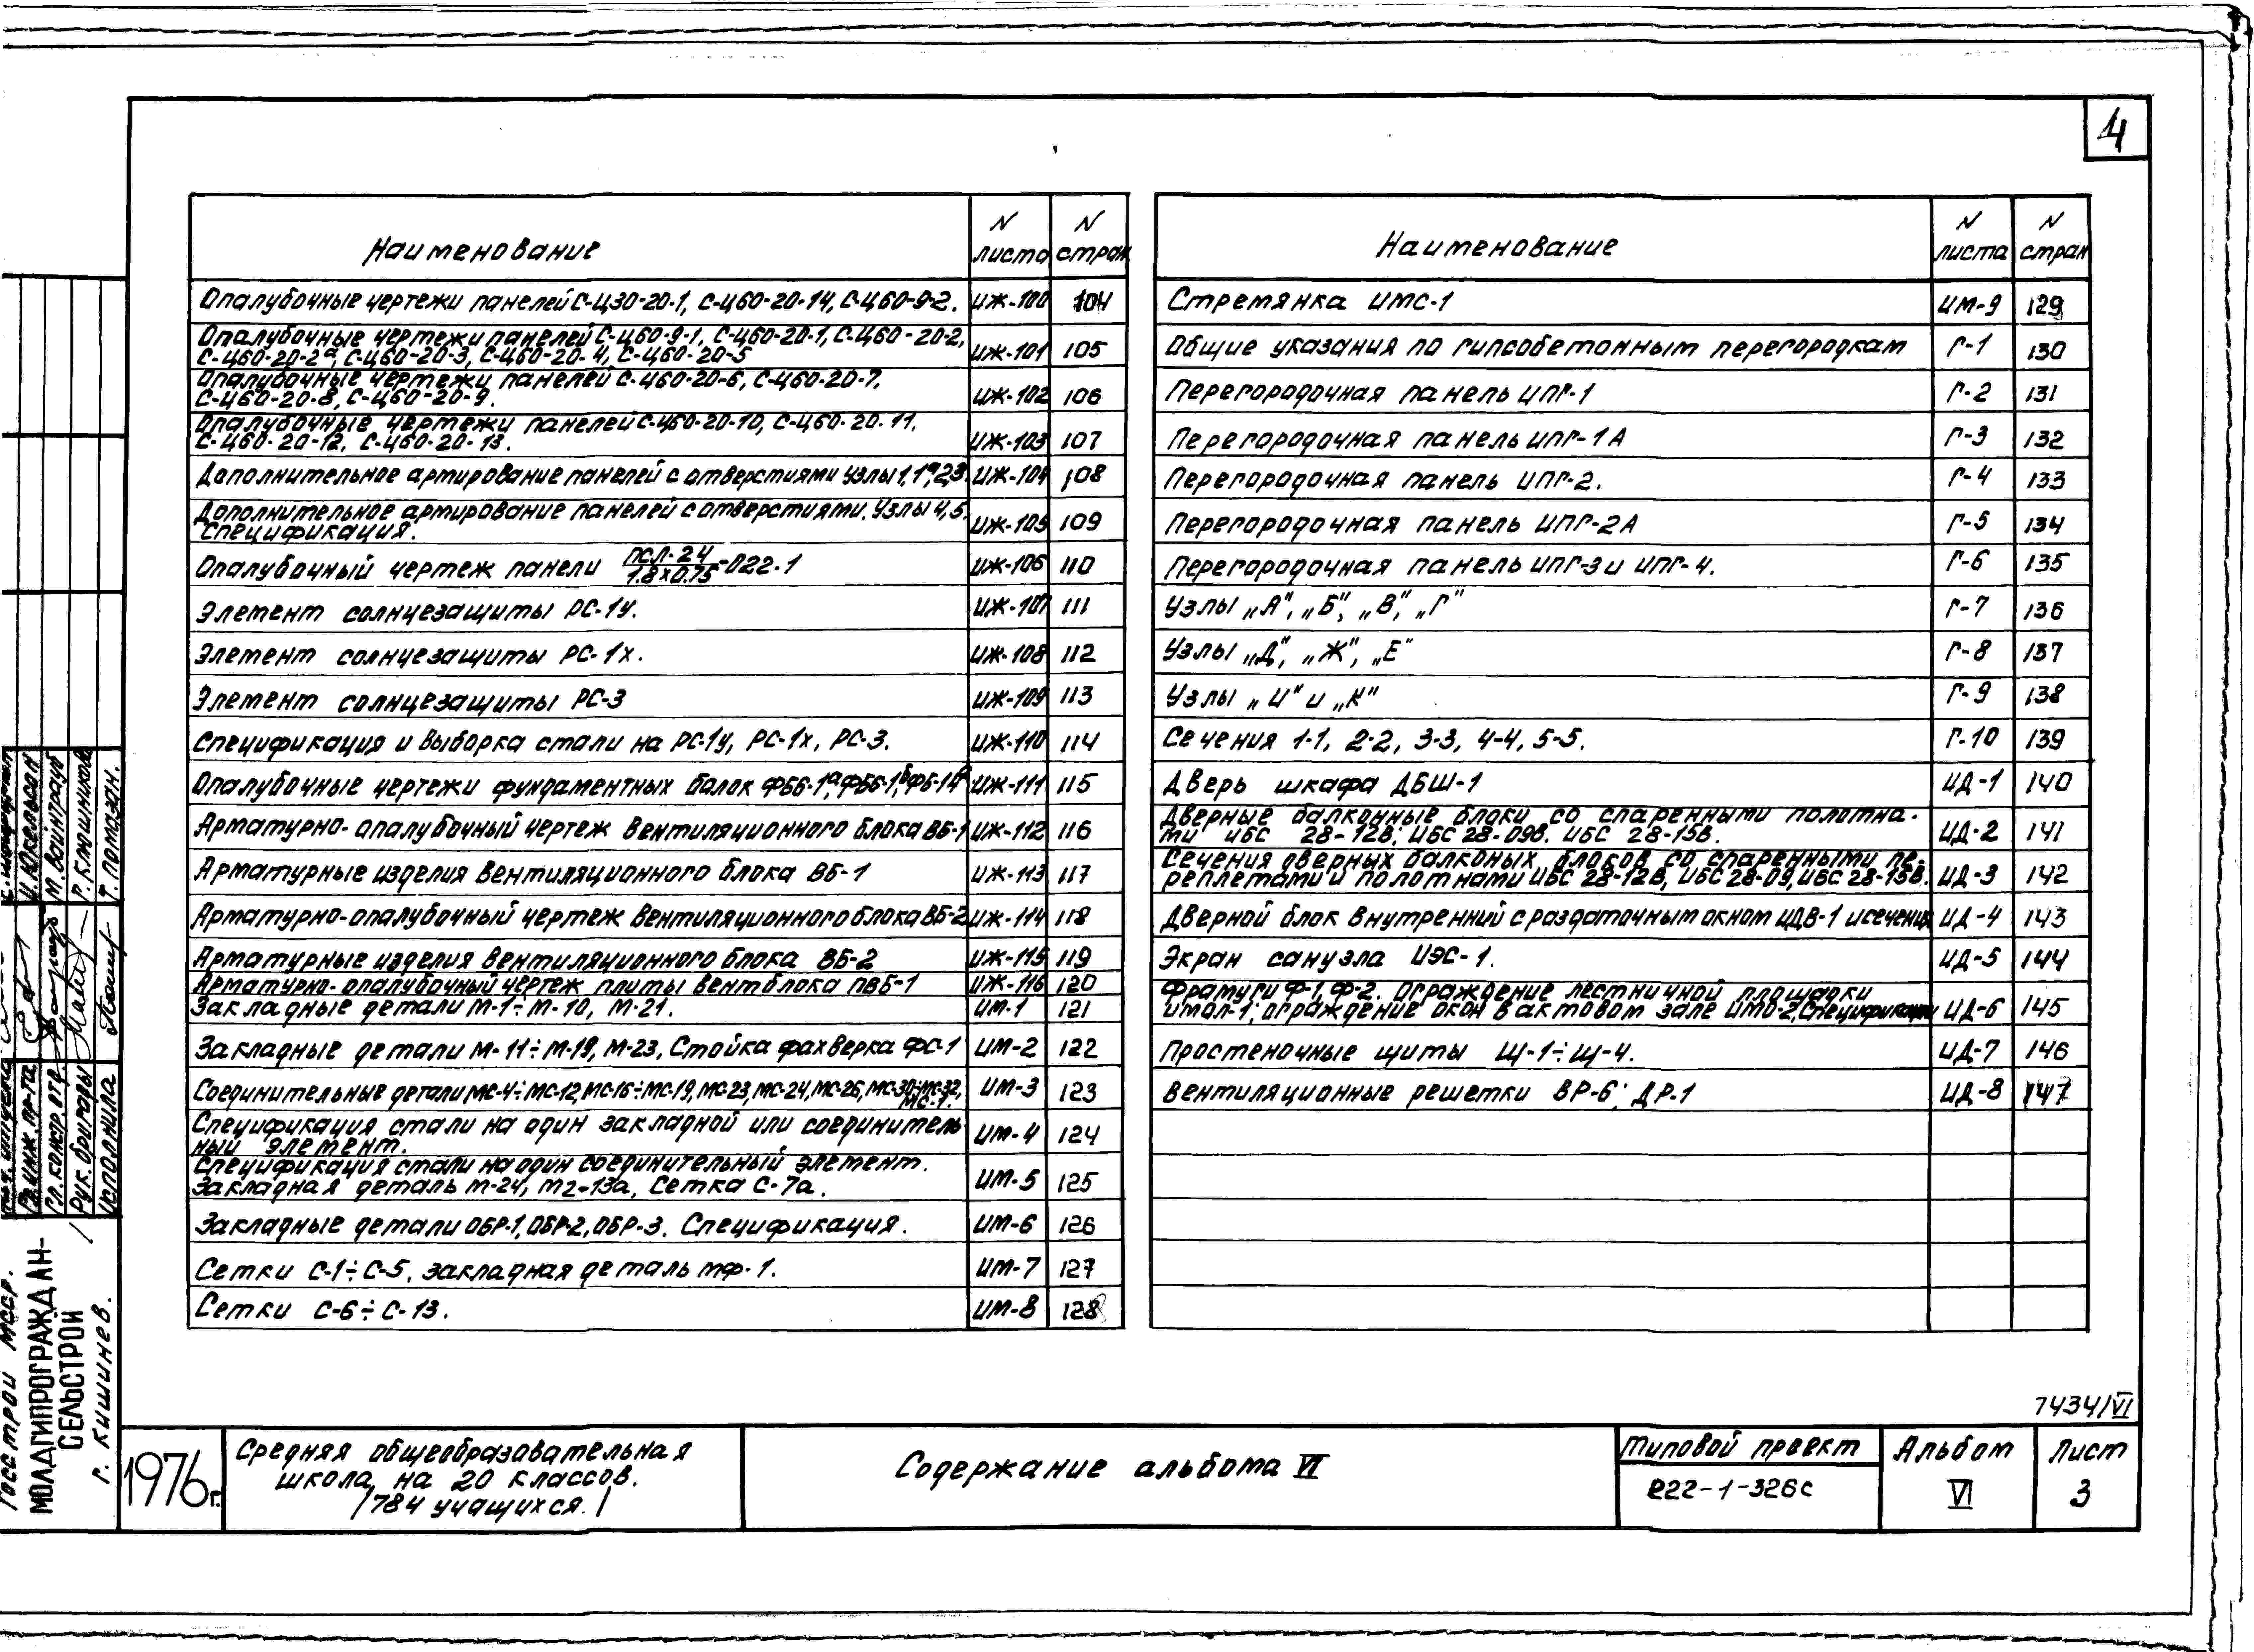 4
Наименование
N листа
N стран
Опалубочные чертежи панелей С-Ц30-20-1, С-Ц60-20-14, С-Ц60-9-2. ИЖ-100 104
Опалубочные чертежи панелей С-Ц60-9-1, С-Ц60-20-1, С-Ц60-20-2,
С-Ц60-20-2а, С-Ц60-20-3, С-Ц60-20-4, С-Ц60-20-5 ИЖ-101 105
Опалубочные чертежи панелей С-Ц60-20-6, С-Ц60-20-7,
С-Ц60-20-8, С-Ц60-20-9. ИЖ-102 106
Опалубочные чертежи панелей С-Ц60-20-10, С-Ц60-20-11,
С-Ц60-20-12, С-Ц60-20-13. ИЖ-103 107
Дополнительное армирование панелей с отверстиями Узлы 1, 1а, 2,3. ИЖ-104 108
Дополнительное армирование панелей с отверстиями. Узлы 4,5.
Спецификация. ИЖ-105 109
Опалубочный чертеж панели ПСЛ-24/1.8х0.75-022-1 ИЖ-106 110
Элемент солнцезащиты РС-1у. ИЖ-107 111
Элемент солнцезащиты РС-1х. ИЖ-108 112
Элемент солнцезащиты РС-3 ИЖ-109 113
Спецификация и выборка стали на РС-1у, РС-1х, РС-3. ИЖ-110 114
Опалубочные чертежи фундаментных балок ФБ6-1а, ФБ6-1б, ФБ-1в ИЖ-111 115
Арматурно-опалубочный чертеж вентиляционного блока ВБ-1 ИЖ-112 116
Арматурные изделия вентиляционного блока ВБ-1 ИЖ-113 117
Арматурно-опалубочный чертеж вентиляционного блока ВБ-2 ИЖ-114 118
Арматурные изделия вентиляционного блока ВБ-2 ИЖ-115 119
Арматурно-опалубочный чертеж плиты вентблока ПВБ-1 ИЖ-116 120
Закладные детали М-1÷М-10, М-21. ИМ-1 121
Закладные детали М-11÷М-19, М-23, Стойка фахверка ФС-1 ИМ-2 122
Соединительные детали МС-4÷МС-12, МС-16÷МС-19, МС-23, МС-24, МС-26, МС-30÷МС-32,
МС-1. ИМ-3 123
Спецификация стали на один закладной или соединитель-
ный элемент. ИМ-4 124
Спецификация стали на один соединительный элемент.
Закладная деталь М-24, М2-13а, Сетка С-7а. ИМ-5 125
Закладные детали ОБР-1, ОБР-2, ОБР-3. Спецификация. ИМ-6 126
Сетки С-1÷С-5, закладная деталь МФ-1. ИМ-7 127
Сетки С-6÷С-13. ИМ-8 128
Наименование
N листа
N стран
Стремянка ИМС-1 ИМ-9 129
Общие указания по гипсобетонным перегородкам Г-1 130
Перегородочная панель ИПГ-1 Г-2 131
Перегородочная панель ИПГ-1А Г-3 132
Перегородочная панель ИПГ-2. Г-4 133
Перегородочная панель ИПГ-2А Г-5 134
Перегородочная панель ИПГ-3 и ИПГ-4. Г-6 135
Узлы „А", „Б", „В", „Г" Г-7 136
Узлы „Д", „Ж", „Е" Г-8 137
Узлы „И" и „К" Г-9 138
Сечения 1-1, 2-2, 3-3, 4-4, 5-5. Г-10 139
Дверь шкафа ДБШ-1 ИД-1 140
Дверные балконные блоки со спаренными полотна-
ми ИБС 28-12В; ИБС 28-09В. ИБС 28-15В. ИД-2 141
Сечения дверных балконых блоков со спаренными пе-
реплетами и полотнами ИБС 28-12В, ИБС 28-09, ИБС 28-15В. ИД-3 142
Дверной блок внутренний с раздаточным окном ИДВ-1 и сечения ИД-4 143
Экран санузла ИЭС-1. ИД-5 144
Фрамуги Ф-1, Ф-2. Ограждение лестничной площадки
ИМОЛ-1; ограждение окон в актовом зале ИМО-2, Спецификации ИД-6 145
Простеночные щиты Щ-1÷Щ-4. ИД-7 146
Вентиляционные решетки ВР-6; ДР-1 ИД-8 147
7434/VI
1976г.
Средняя общеобразовательная
школа на 20 классов.
/784 учащихся./
Содержание альбома VI
Типовой проект
222-1-326с
Альбом
VI
Лист
3
Госстрой МССР.
МОЛДГИПРОГРАЖДАН-
СЕЛЬСТРОЙ
г. Кишинев.
Гл. инж. пр-та И. Юкельсон
Гл. констр. отр. М. Вайнтрауб
Рук. бригады Р. Клюшникова
Исполнила Т. Помазан.